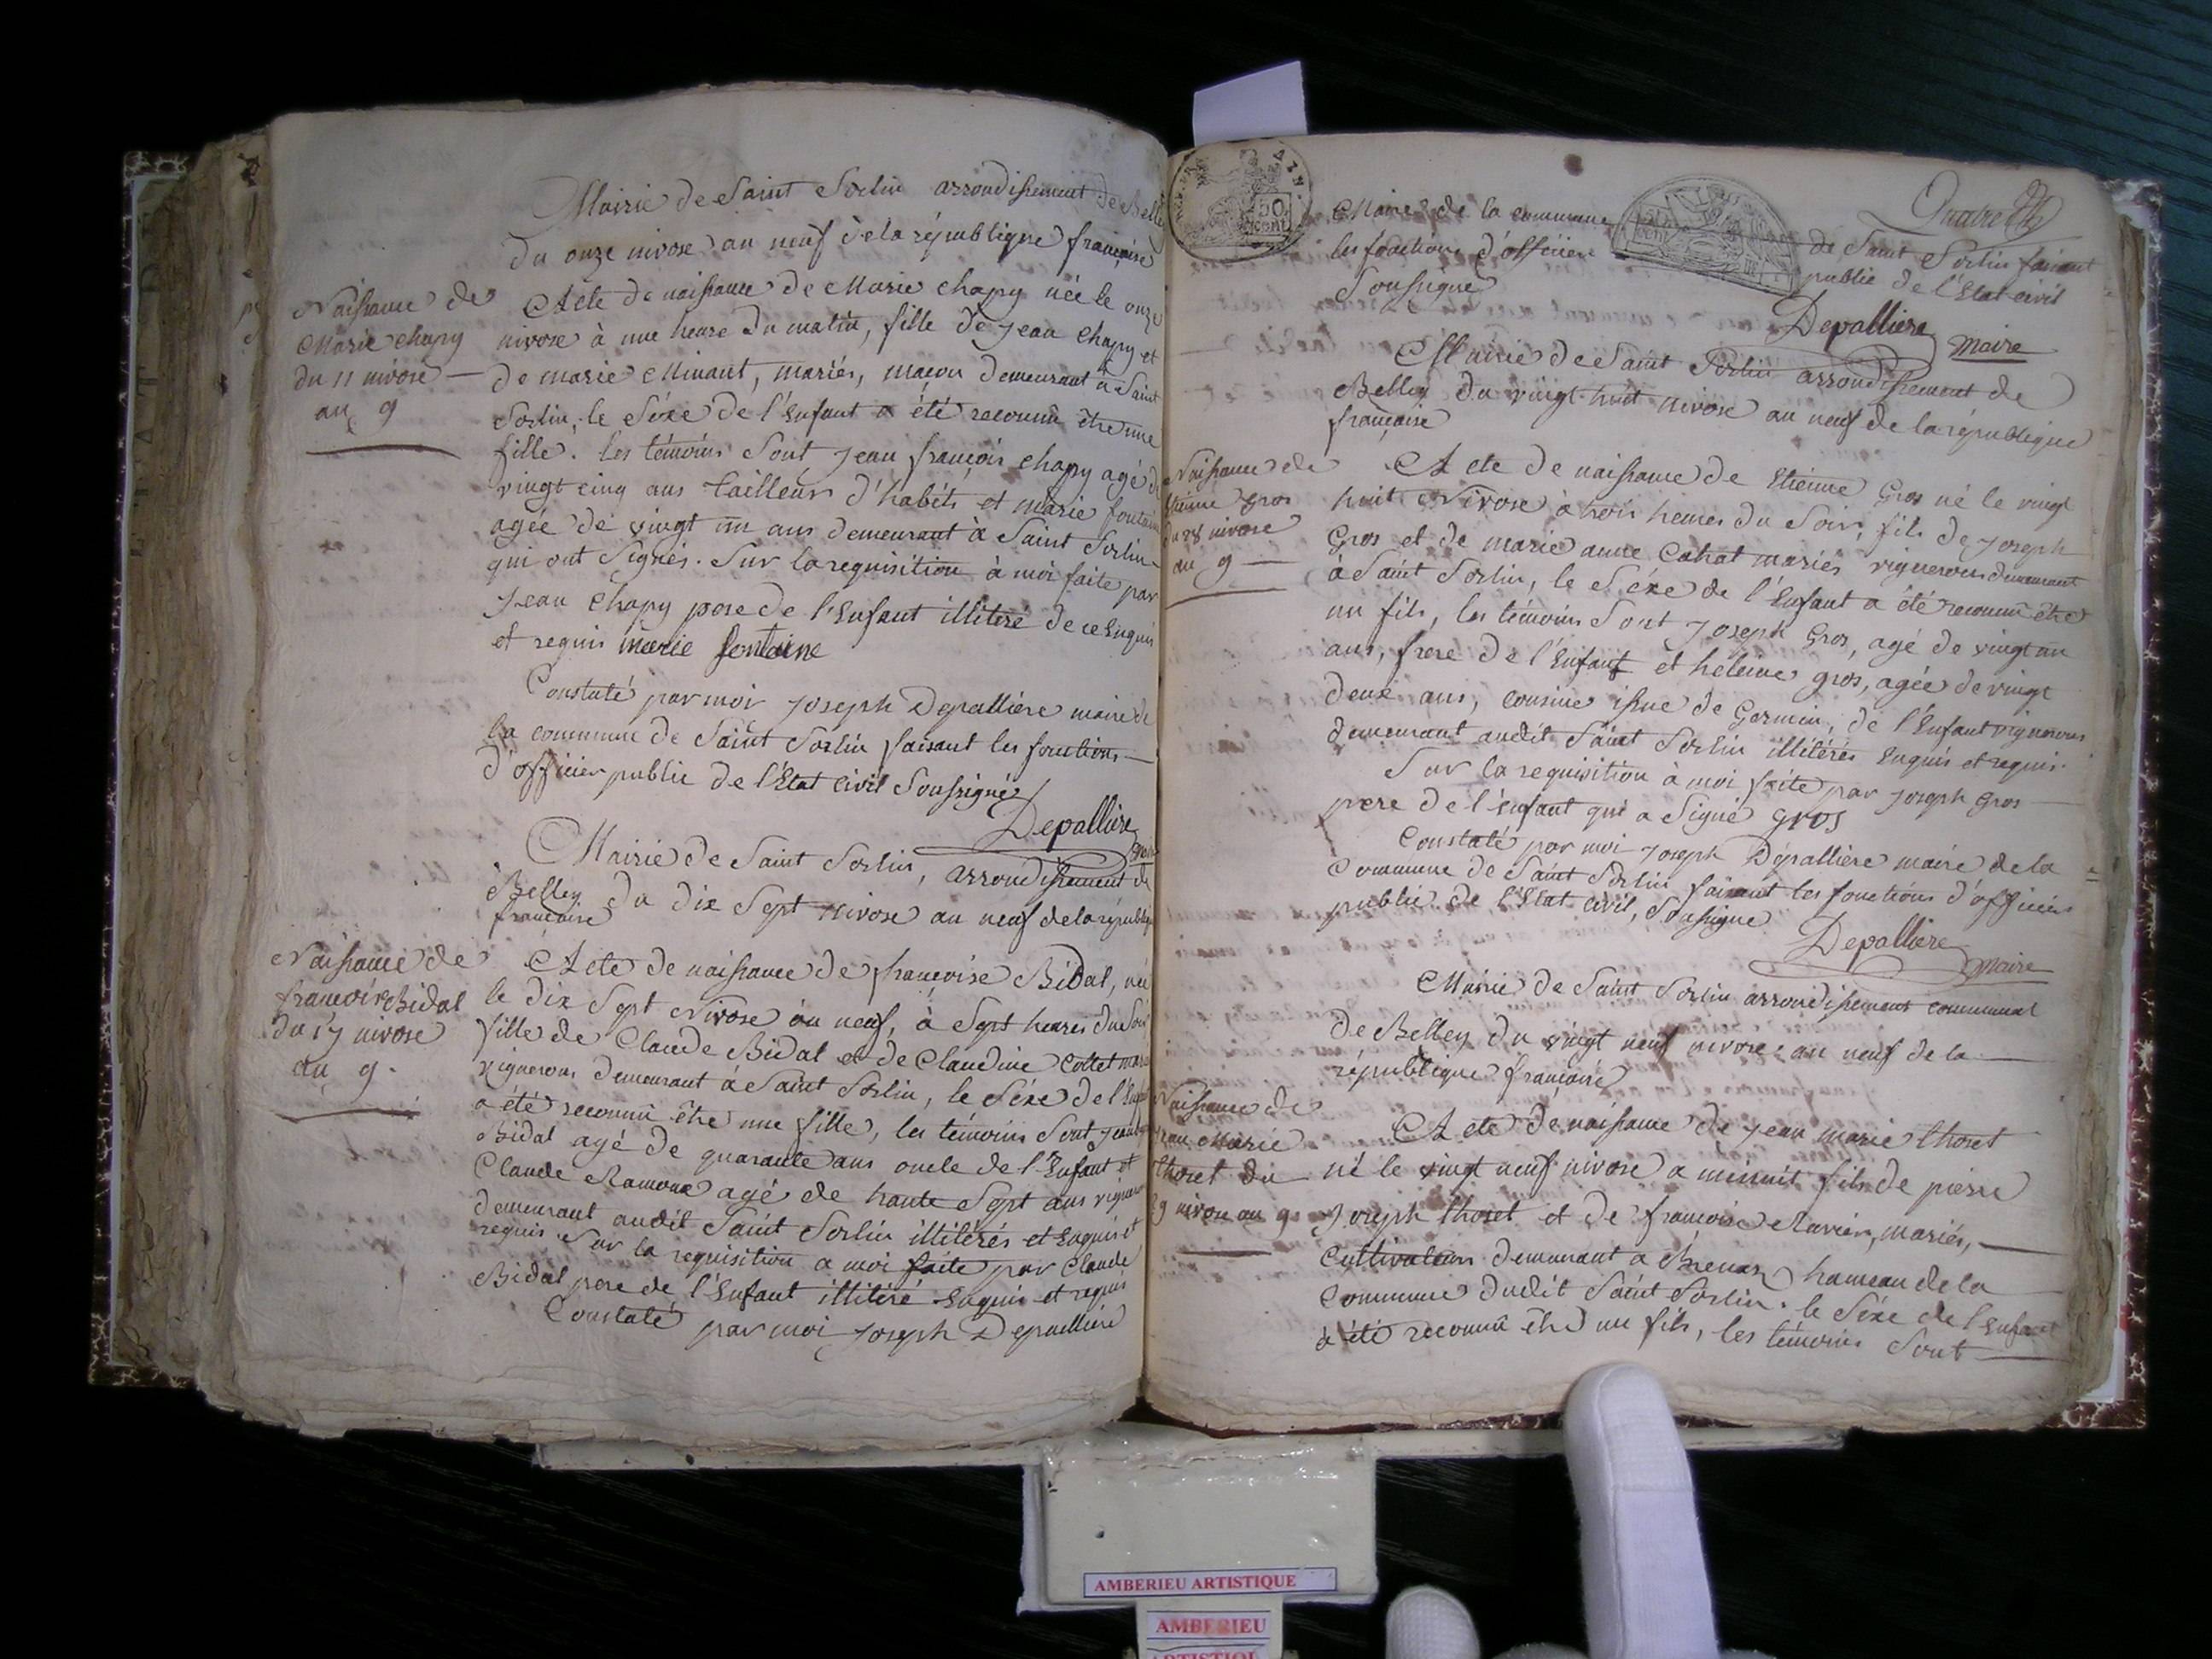 Mairie de Saint Sorlin arrondissement de Belley
du onze nivose an neuf de la république française
Naissance de
Marie chapy
du 11 nivose
an 9
Acte de naissance de Marie chapy née le onze
nivose à une heure du matin, fille de jean chapy et
de marie Minant, mariés, maçon demeurant à Saint
Sorlin, le Séxe de l'Enfant a été reconnû être une
fille. les témoins Sont jean françois chapy agé de
vingt cinq ans tailleurs d'habits et marie fontaine
agée de vingt un ans demeurant à Saint Sorlin
qui ont Signés. Sur la requisition à moi faite par
jean chapy pere de l'Enfant illitéré de ce Enquis
et requis marie fontaine
Constaté par moi joseph Depallière maire de
la commune de Saint Sorlin faisant les fonctions
d'officier public de l'Etat Civil Soussigné
Depalliere
Maire
Mairie de Saint Sorlin, arrondissement de
Belley du dix Sept nivose an neuf de la républiq
française
Naissance de
françoise Bidal
du 17 nivose
an 9.
Acte de naissance de françoise Bidal, née
le dix Sept Nivose an neuf, à Sept heures du Soir
fille de Claude Bidal et de Claudine Collet mariés
vignerons demeurant à Saint Sorlin, le Séxe de l'Enfant
a été reconnû être une fille, les témoins Sont jean
Bidal agé de quarante ans oncle de l'Enfant et
Claude Ramoux agé de trante Sept ans vignerons
demeurant audit Saint Sorlin illitérés et Enquis et
requis. Sur la requisition a moi faite par Claude
Bidal pere de l'Enfant illitéré Enquis et requis
Constaté par moi joseph Depallière
50
cent
AIN
Quatre
Maire de la commune de Saint Sorlin faisant
les fonctions d'officier public de l'Etat civil
Soussigné
Depalliere
Maire
Mairie de Saint Sorlin arrondissement de
Belley du vingt-huit nivose an neuf de la république
française
Naissance de
Etienne Gros
du 28 nivose
an 9
Acte de naissance de Etienne Gros né le vingt
huit Nivose à trois heures du Soir, fils de joseph
Gros et de marie anne Cahat mariés vignerons demeurant
à Saint Sorlin, le Séxe de l'Enfant a été reconnû être
un fils, les témoins Sont joseph Gros, agé de vingt un
ans, frere de l'Enfant et heleine gros, agée de vingt
deux ans, cousine issue de Germain, de l'Enfant vignerons
demeurant audit Saint Sorlin illitérés Enquis et requis.
Sur la requisition à moi faite par joseph gros
pere de l'enfant qui a Signé gros
Constaté par moi joseph Dépallière maire de la
Commune de Saint Sorlin faisant les fonctions d'officier
public de l'Etat civil, Soussigné
Depalliere
Maire
Mairie de Saint Sorlin arrondissement communal
de Belley du vingt neuf nivose an neuf de la
république française
Naissance de
jean Marie
thoret du
29 nivose an 9
Acte de naissance de jean marie thoret
né le vingt neuf nivose a minuit fils de pierre
joseph thoret et de françoise Ravier, mariés,
Cultivateurs demeurant a Brenaz hameau de la
Commune dudit Saint Sorlin. le Séxe de l'Enfant
a été reconnû être un fils, les témoins Sont
AMBERIEU ARTISTIQUE
AMBERIEU
ARTISTIQUE